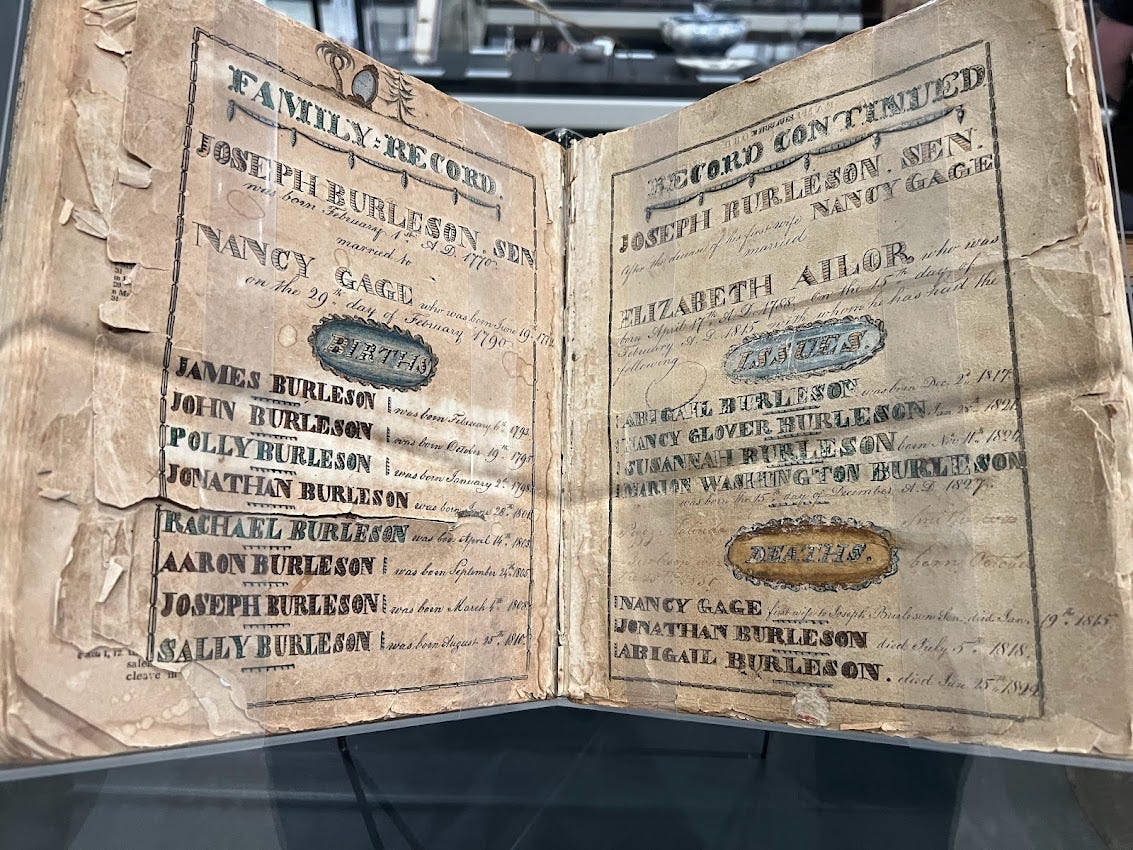 FAMILY-RECORD.
JOSEPH BURLESON. SEN
was born February 1st A.D. 1770
married to
NANCY GAGE who was born June 19th
on the 29th day of February 1790
BIRTHS
JAMES BURLESON was born February 6th 1793
JOHN BURLESON was born October 19th 1795
POLLY BURLESON was born January 2d 1798
JONATHAN BURLESON was born 28th
RACHAEL BURLESON was bor April 14th 1803
AARON BURLESON was born September 24th 1805
JOSEPH BURLESON was born March 4th 1808
SALLY BURLESON was born August 25th 1810
cleave
RECORD CONTINUED
JOSEPH BURLESON. SEN.
After the decease of his first wife NANCY GAGE
married
ELIZABETH AILOR who was
born April 17th A.D. 1798. On the 15th day of
February A.D. 1815 with whom he has had the
following
ISSUES.
ABIGAIL BURLESON was born Dec. 2d 1817
NANCY GLOVER BURLESON Jan
SUSANNAH BURLESON born Nov 11th
MARION WASHINGTON BURLESON
was born the 15th day of December A.D. 1827.
born
DEATHS.
NANCY GAGE first wife to Joseph Burleson Sen. died Jan. 19th 1815
JONATHAN BURLESON died July 5th 1818.
ABIGAIL BURLESON. died Jan 25th